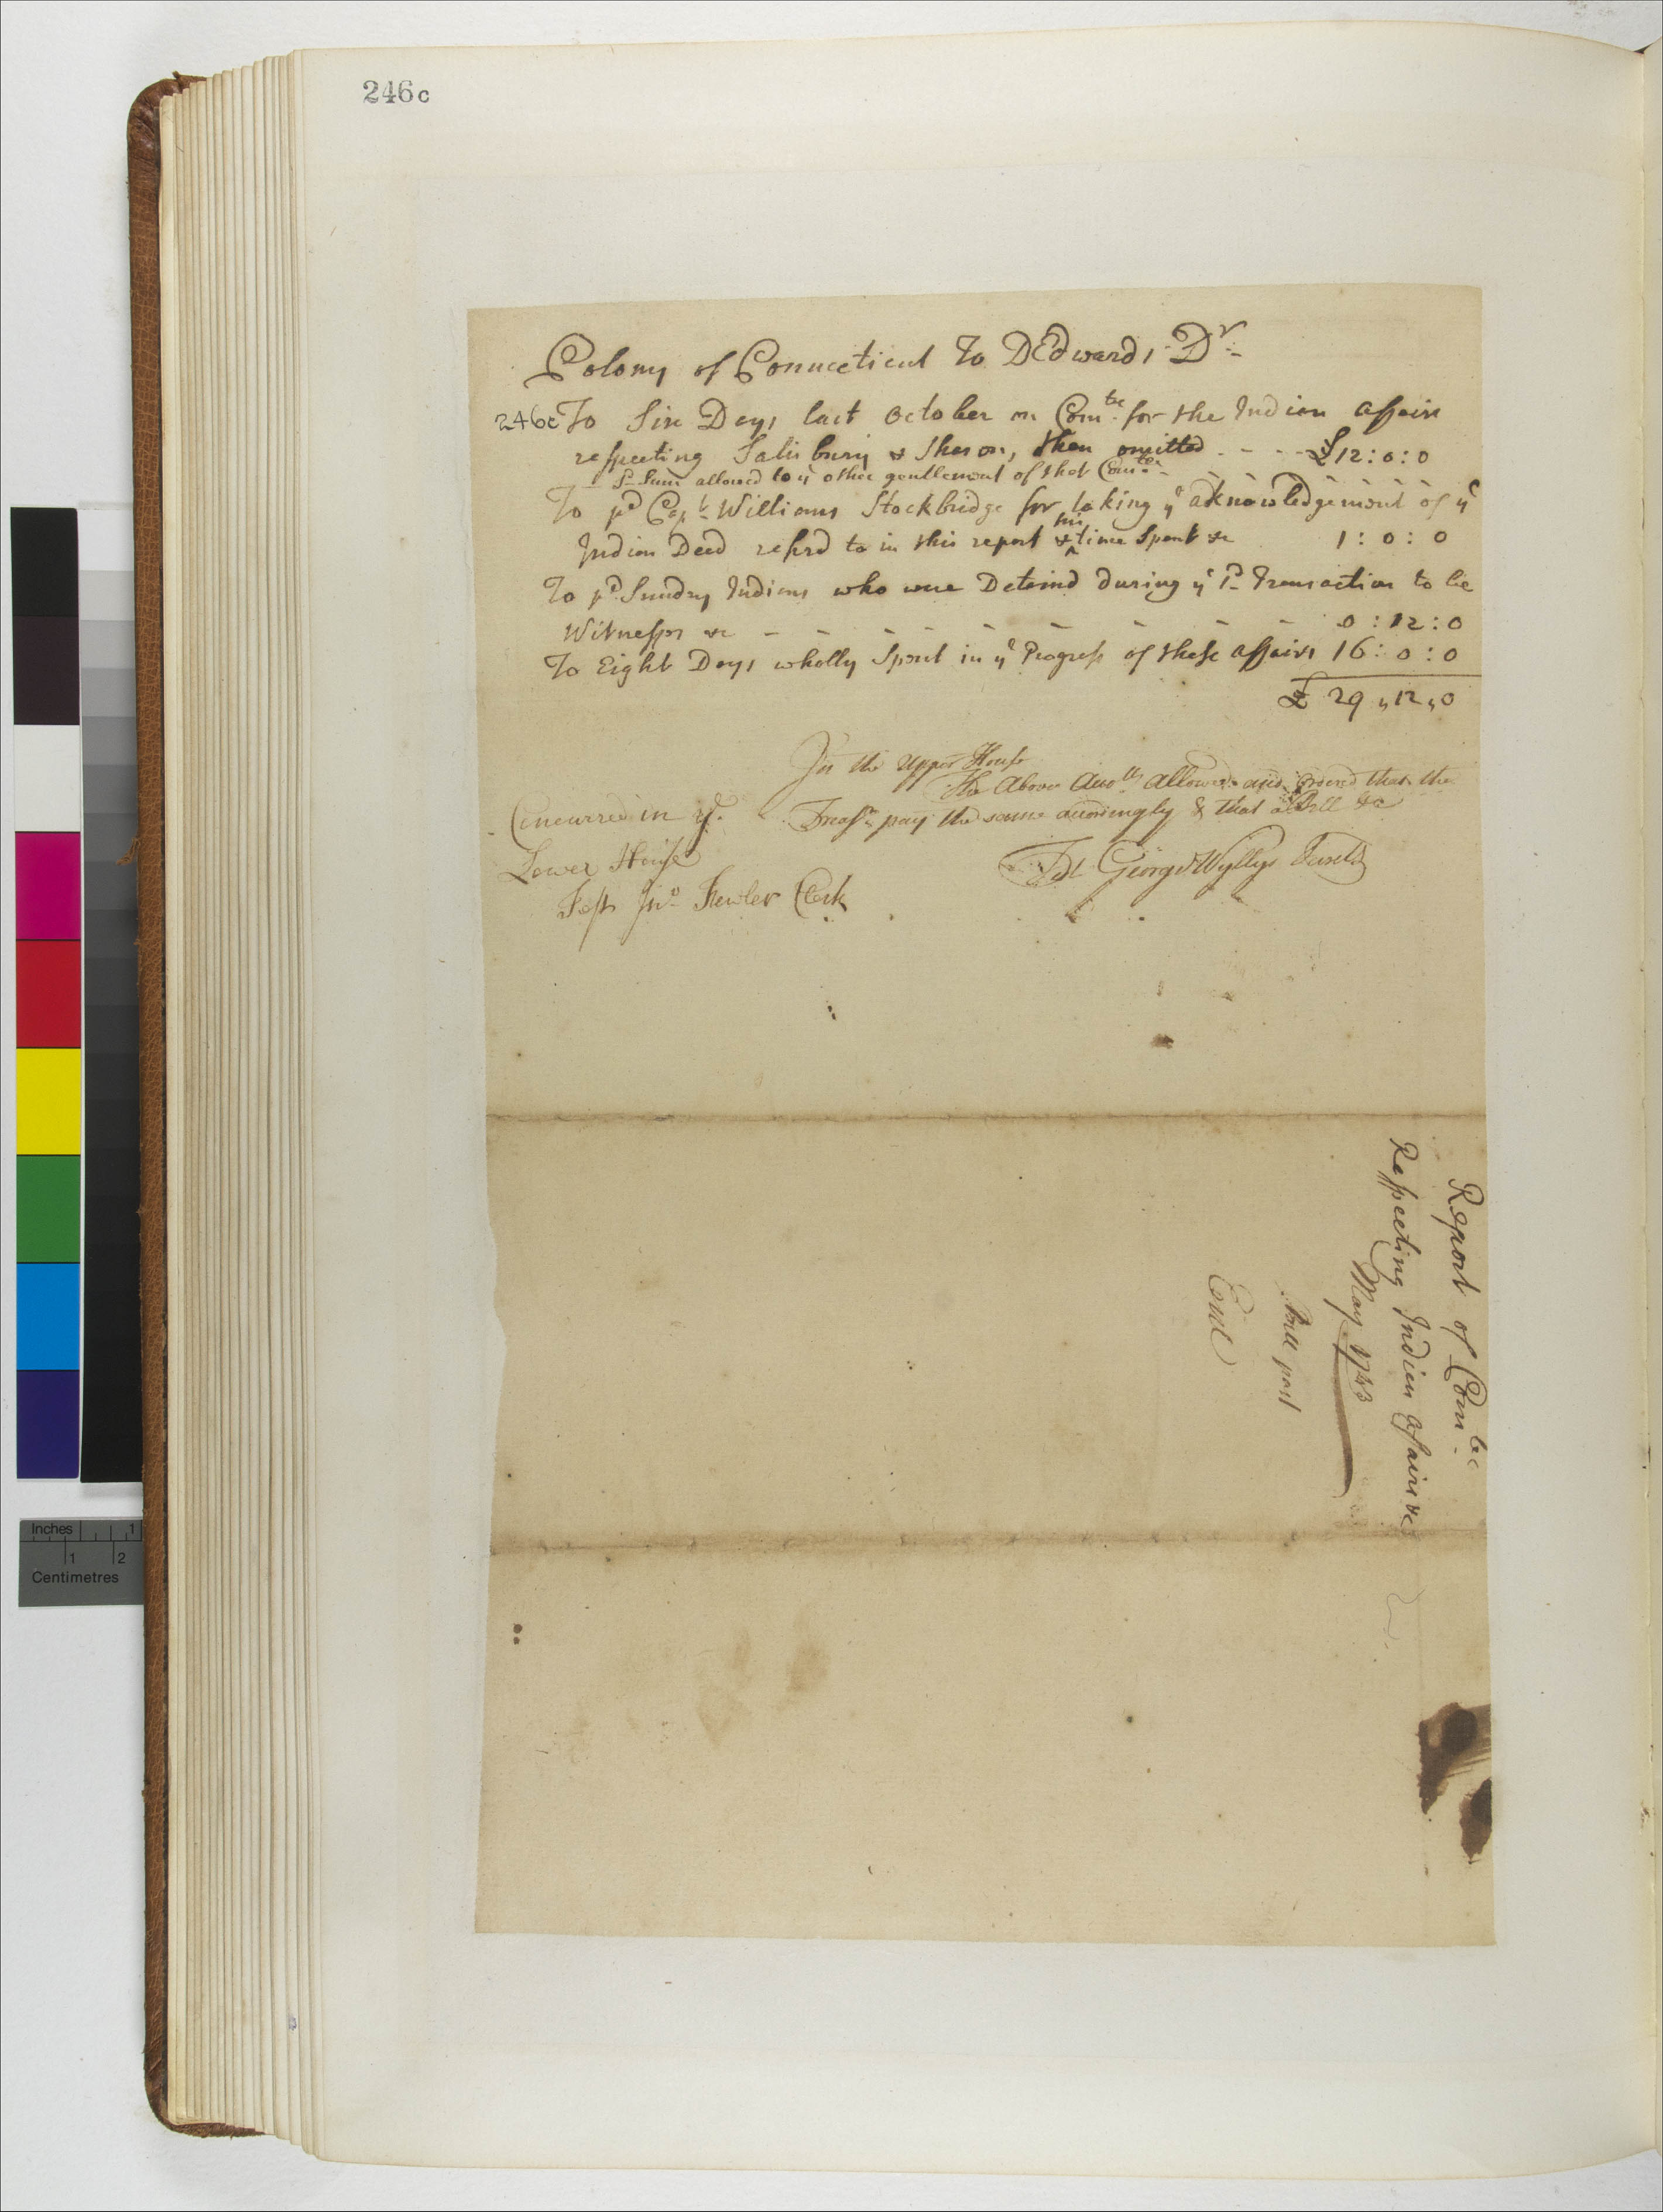 246c
Colony of Connecticut To DEdwards Dr
246c To Six Days last October on Comtee for the Indian affair
respecting Salisbury & Sharon, then omitted - - - £12:0:0
sd Sum allowed to ye other gentlement of that Comtee
To pd Capt Williams Stockbridge for taking ye acknowledgement of ye
Indian Deed referd to in this report & his time Spent &c 1:0:0
To pd Sundry Indians who were Detaind during ye sd Transaction to be
Witnesses &c - - - - - - - - 0:12:0
To Eight Days wholly Spent in ye Progress of these affairs 16:0:0
£ 29,,12,,0
In the Upper House
The Above Accotts allowed and ordered that the
Treasr pay the same accordingly & that a Bill &c
Test George Wyllys Secrety
Concurred in ye
Lower House
Test Jno Fowler Clerk
Report of Comtee
Respecting Indian afairs &c
May 1743
Bill past
Entd
Inches 1
1 2
Centimetres